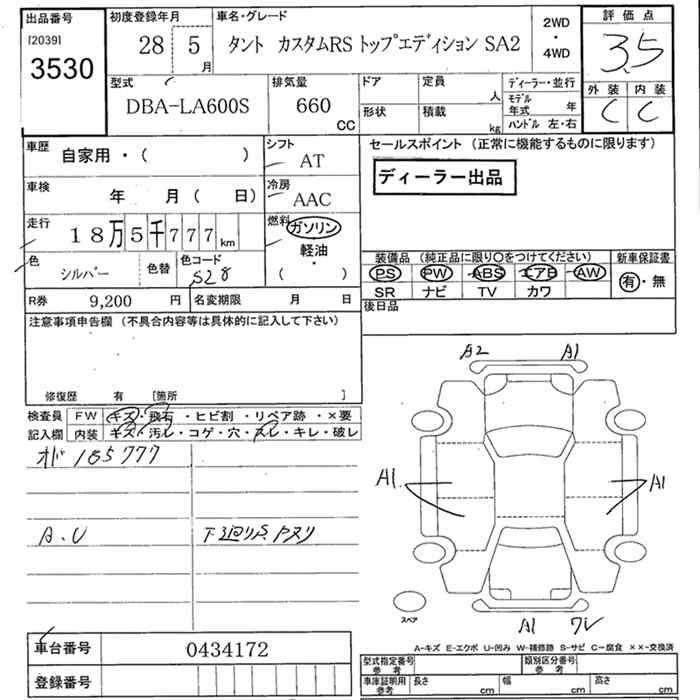 出品番号
[2039]
3530
初度登録年月
28 5
月
車名・グレード
タント カスタムRS トップエディション SA2
2WD
・
4WD
評 価 点
3.5
外 装 内 装
C C
型式
DBA-LA600S
排気量
660
CC
ドア
形状
定員
人
積載
kg
ディーラー・並行
モデル年式 年
ハンドル 左・右
車歴
自家用・( )
シフト
AT
車検
年 月( 日)
冷房
AAC
走行
18万5千777km
燃料
ガソリン
軽油
・
( )
色
シルバー
色替
色コード
S28
R券
9,200 円
名変期限 月 日
セールスポイント (正常に機能するものに限ります)
ディーラー出品
装備品 (純正品に限り○をつけてください)
新車保証書
PS PW ABS エアB AW
SR ナビ TV カワ
有・無
後日品
注意事項申告欄 (不具合内容等は具体的に記入して下さい)
修復歴 有 [箇所 ]
検査員
記入欄
FW キズ・飛石・ヒビ割・リペア跡・×要
内装 キズ・汚レ・コゲ・穴・スレ・キレ・破レ
オド 185777
A.U
下廻りS.トヌリ
A2 A1
A1. A1
A1
スペア
A-キズ E-エクボ U-凹み W-補修跡 S-サビ C-腐食 ××-交換済
車台番号
0434172
登録番号
型式指定番号
参考
類別区分番号
参考
車庫証明用
参考
長さ cm
幅 cm
高さ cm